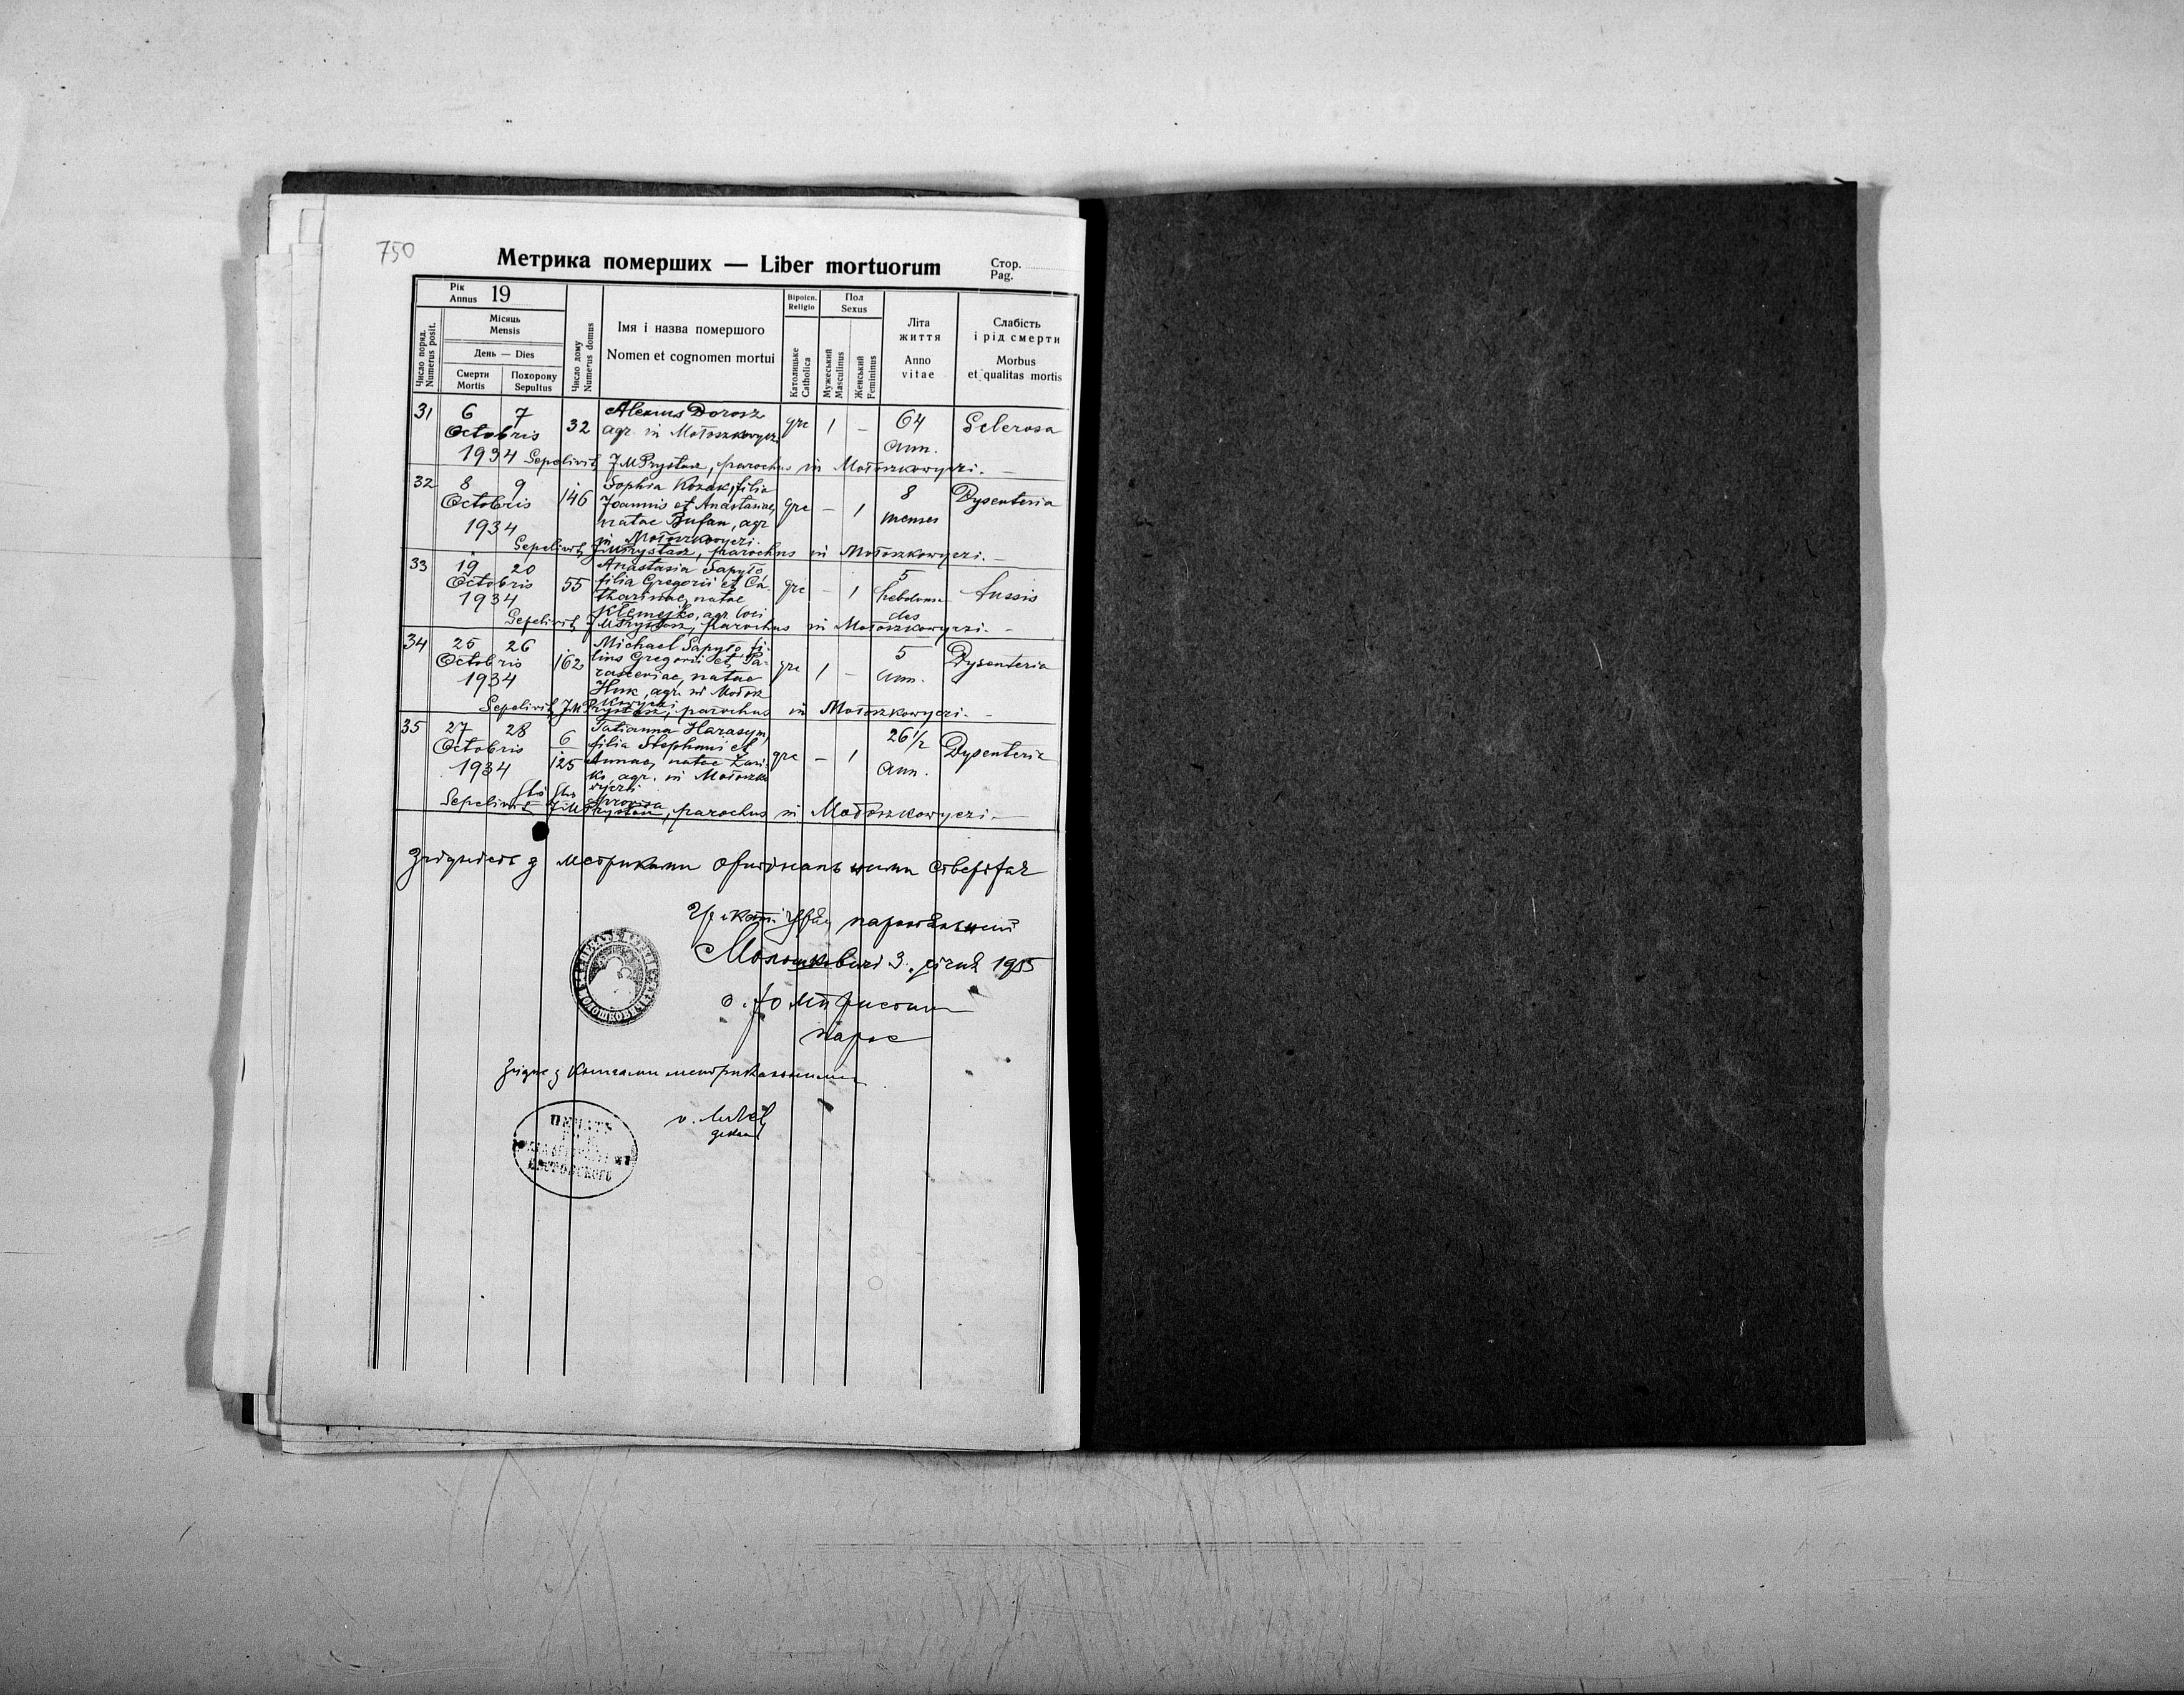 750
Метрика померших — Liber mortuorum
Стор.
Pag.
Рік
Annus 19
Місяць
Mensis
День — Dies
Смерти
Mortis
Похорону
Sepultus
Число поряд.
Numerus posit.
Число дому
Numerus domus
Імя і назва помершого
Nomen et cognomen mortui
Віроісп.
Religio
Католицьке
Catholica
Пол
Sexus
Мужеський
Masculinus
Женський
Femininus
Літа
життя
Anno
vitae
Слабість
і рід смерти
Morbus
et qualitas mortis
31 6 7 32 Alexius Dorosz grc 1 — 64 Sclerosa
Octobris agr. in Mołoszkowyczi Ann.
1934 Sepelivit J M Prystasz, parochus in Mołoszkowyczi. —
32 8 9 146 Sophia Kozak, filia grc — 1 8 Dysenteria
Octobris Joannis et Anastasiae, menses
1934 natae Bufan, agr
in Mołoszkowyczi.
Sepelivit J M Prystasz, parochus in Mołoszkowyczi. —
33 19 20 55 Anastasia Sapyło grc — 1 5 tussis
Octobris filia Gregorii et Ca- hebdoma
1934 tharinae, natae des
Klemejko, agr. loci
Sepelivit J M Prystasz, parochus in Mołoszkowyczi. —
34 25 26 162 Michael Sapyło fi- grc 1 — 5 Dysenteria
Octobris lius Gregorii et Pa- Ann.
1934 rasceviae, natae
Huk, agr. in Mołosz
kowyczi
Sepelivit J M Prystasz, parochus in Mołoszkowyczi. —
35 27 28 6 Tatianna Harasym, grc — 1 26 1/2 Dysenteria
Octobris 125 filia Stephani et Ann.
1934 Annae, natae
agr. in Mołoszko
wyczi
Sepelivit J M Prystasz, parochus in Mołoszkowyczi —
Згідність з метриками оригінальними стверджає
Гр. кат. Уряд парохіяльний
Молошковичі 3. січня 1935
парох
Згідне з книгами метрикальними
декан
ПЕЧАТЬ